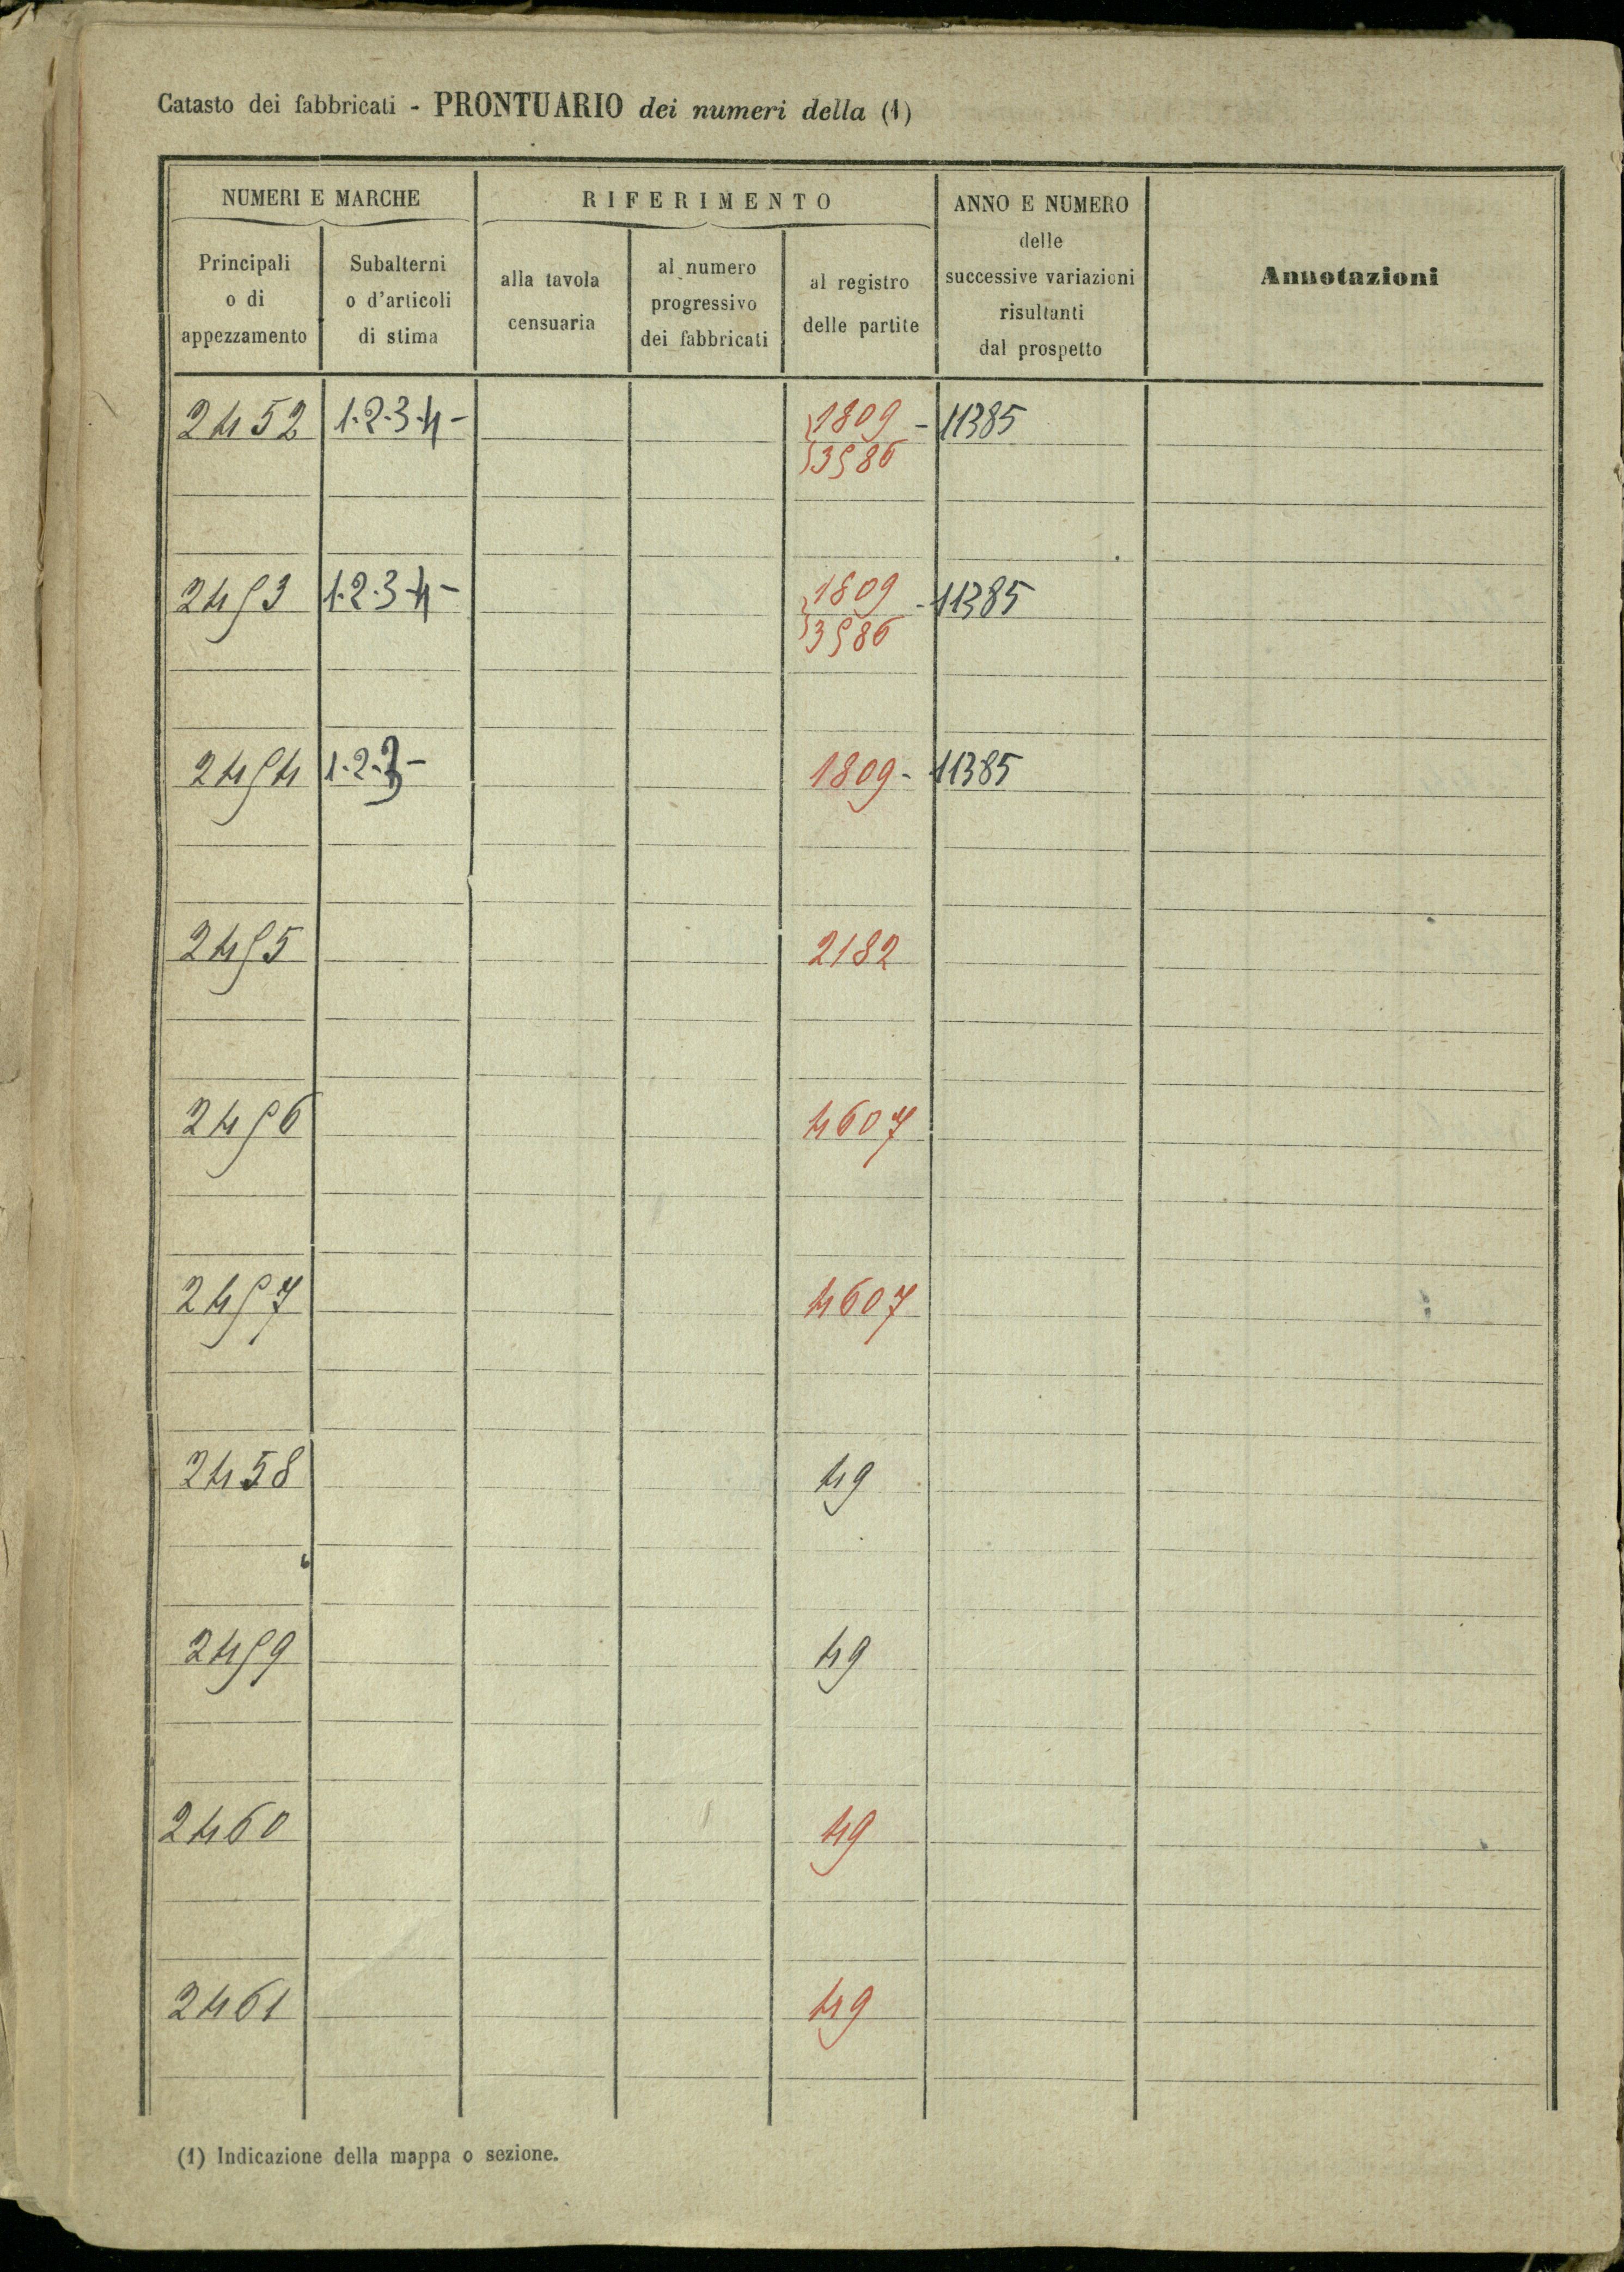 Catasto dei fabbricati - PRONTUARIO dei numeri della (1)
NUMERI E MARCHE
RIFERIMENTO
ANNO E NUMERO
delle
successive variazioni
risultanti
dal prospetto
Annotazioni
Principali
o di
appezzamento
Subalterni
o d'articoli
di stima
alla tavola
censuaria
al numero
progressivo
dei fabbricati
al registro
delle partite
2452 1.2.3.4- 1809 - 11385
3586
2453 1.2.3.4- 1809 - 11385
3586
2454 1.2.3- 1809 - 11385
2455 2182
2456 4607
2457 4607
2458 49
2459 49
2460 49
2461 49
(1) Indicazione della mappa o sezione.